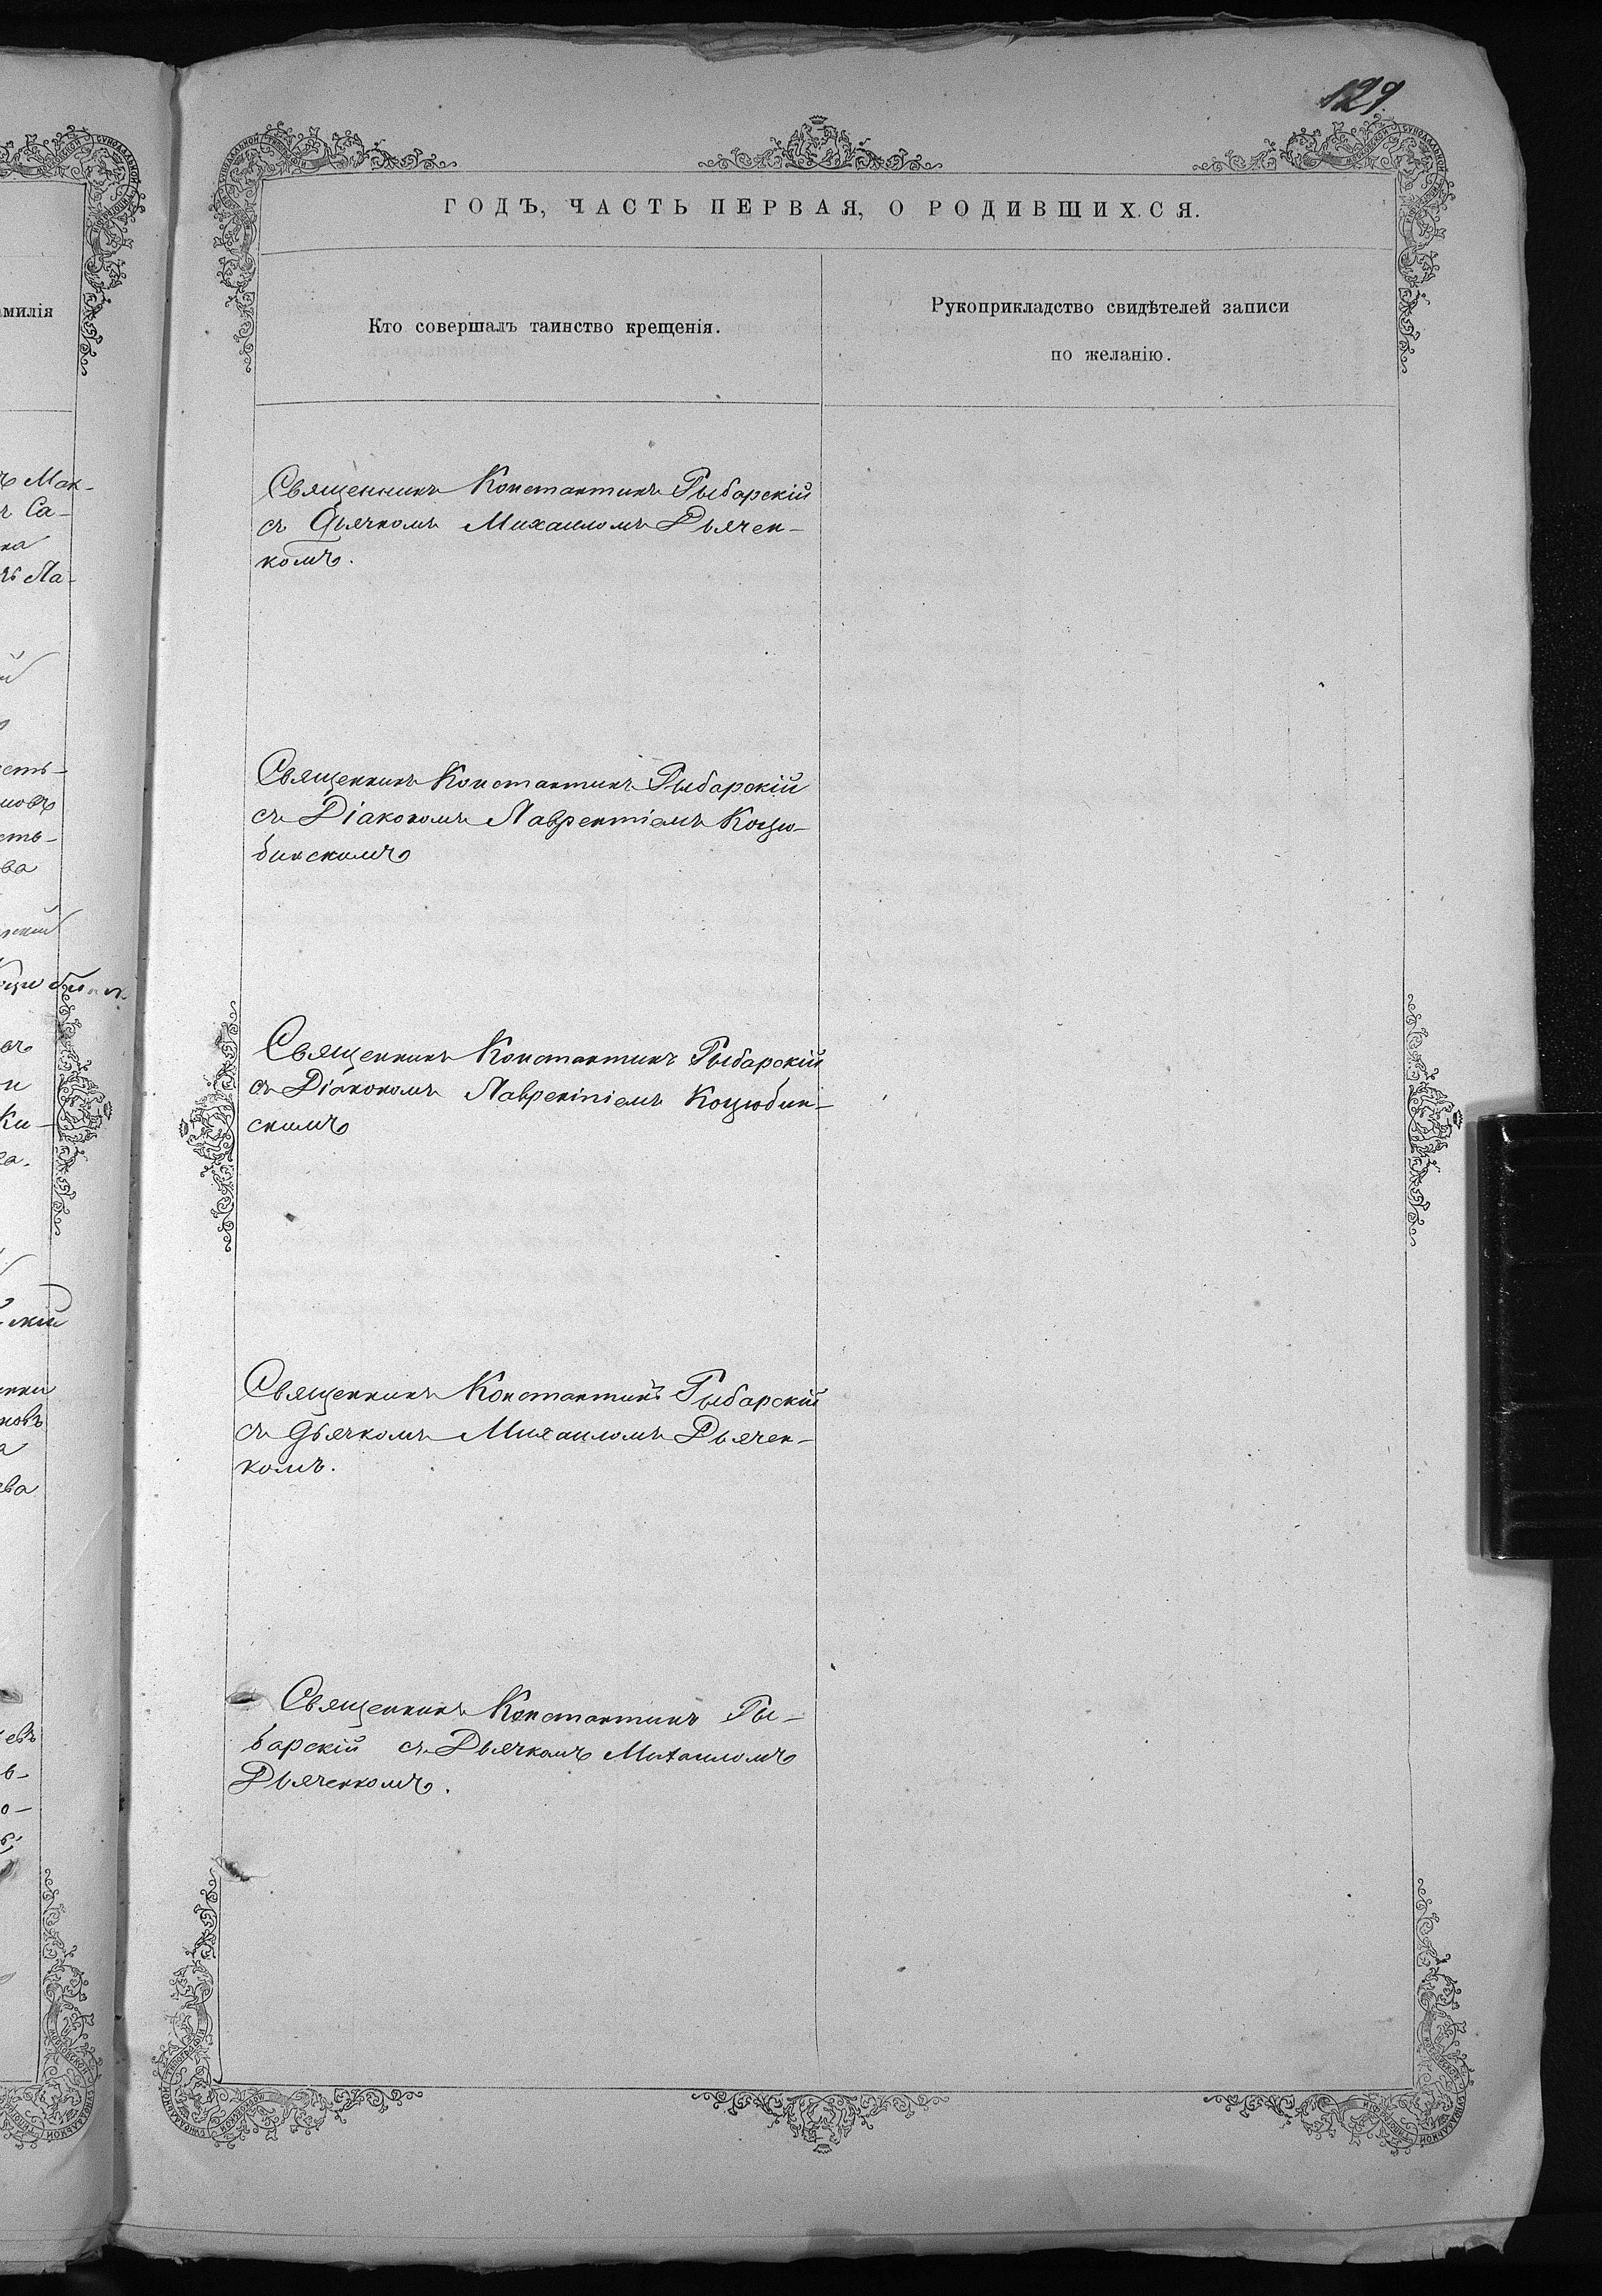 129
ГОДЪ, ЧАСТЬ ПЕРВАЯ, О РОДИВШИХСЯ.
Кто совершалъ таинство крещенія.
Рукоприкладство свидѣтелей записи
по желанію.
Священникъ Константинъ Рыбарскій
съ Дьячкомъ Михаиломъ Дьячен-
комъ.
Священникъ Константинъ Рыбарскій
съ Діакономъ Лаврентіемъ Коцю-
бинскимъ
Священникъ Константинъ Рыбарскій
съ Діакономъ Лаврентіемъ Коцюбин-
скимъ
Священникъ Константинъ Рыбарскій
съ Дьячкомъ Михаиломъ Дьячен-
комъ.
Священникъ Константинъ Ры-
барскій съ Дьячкомъ Михаиломъ
Дьяченкомъ.